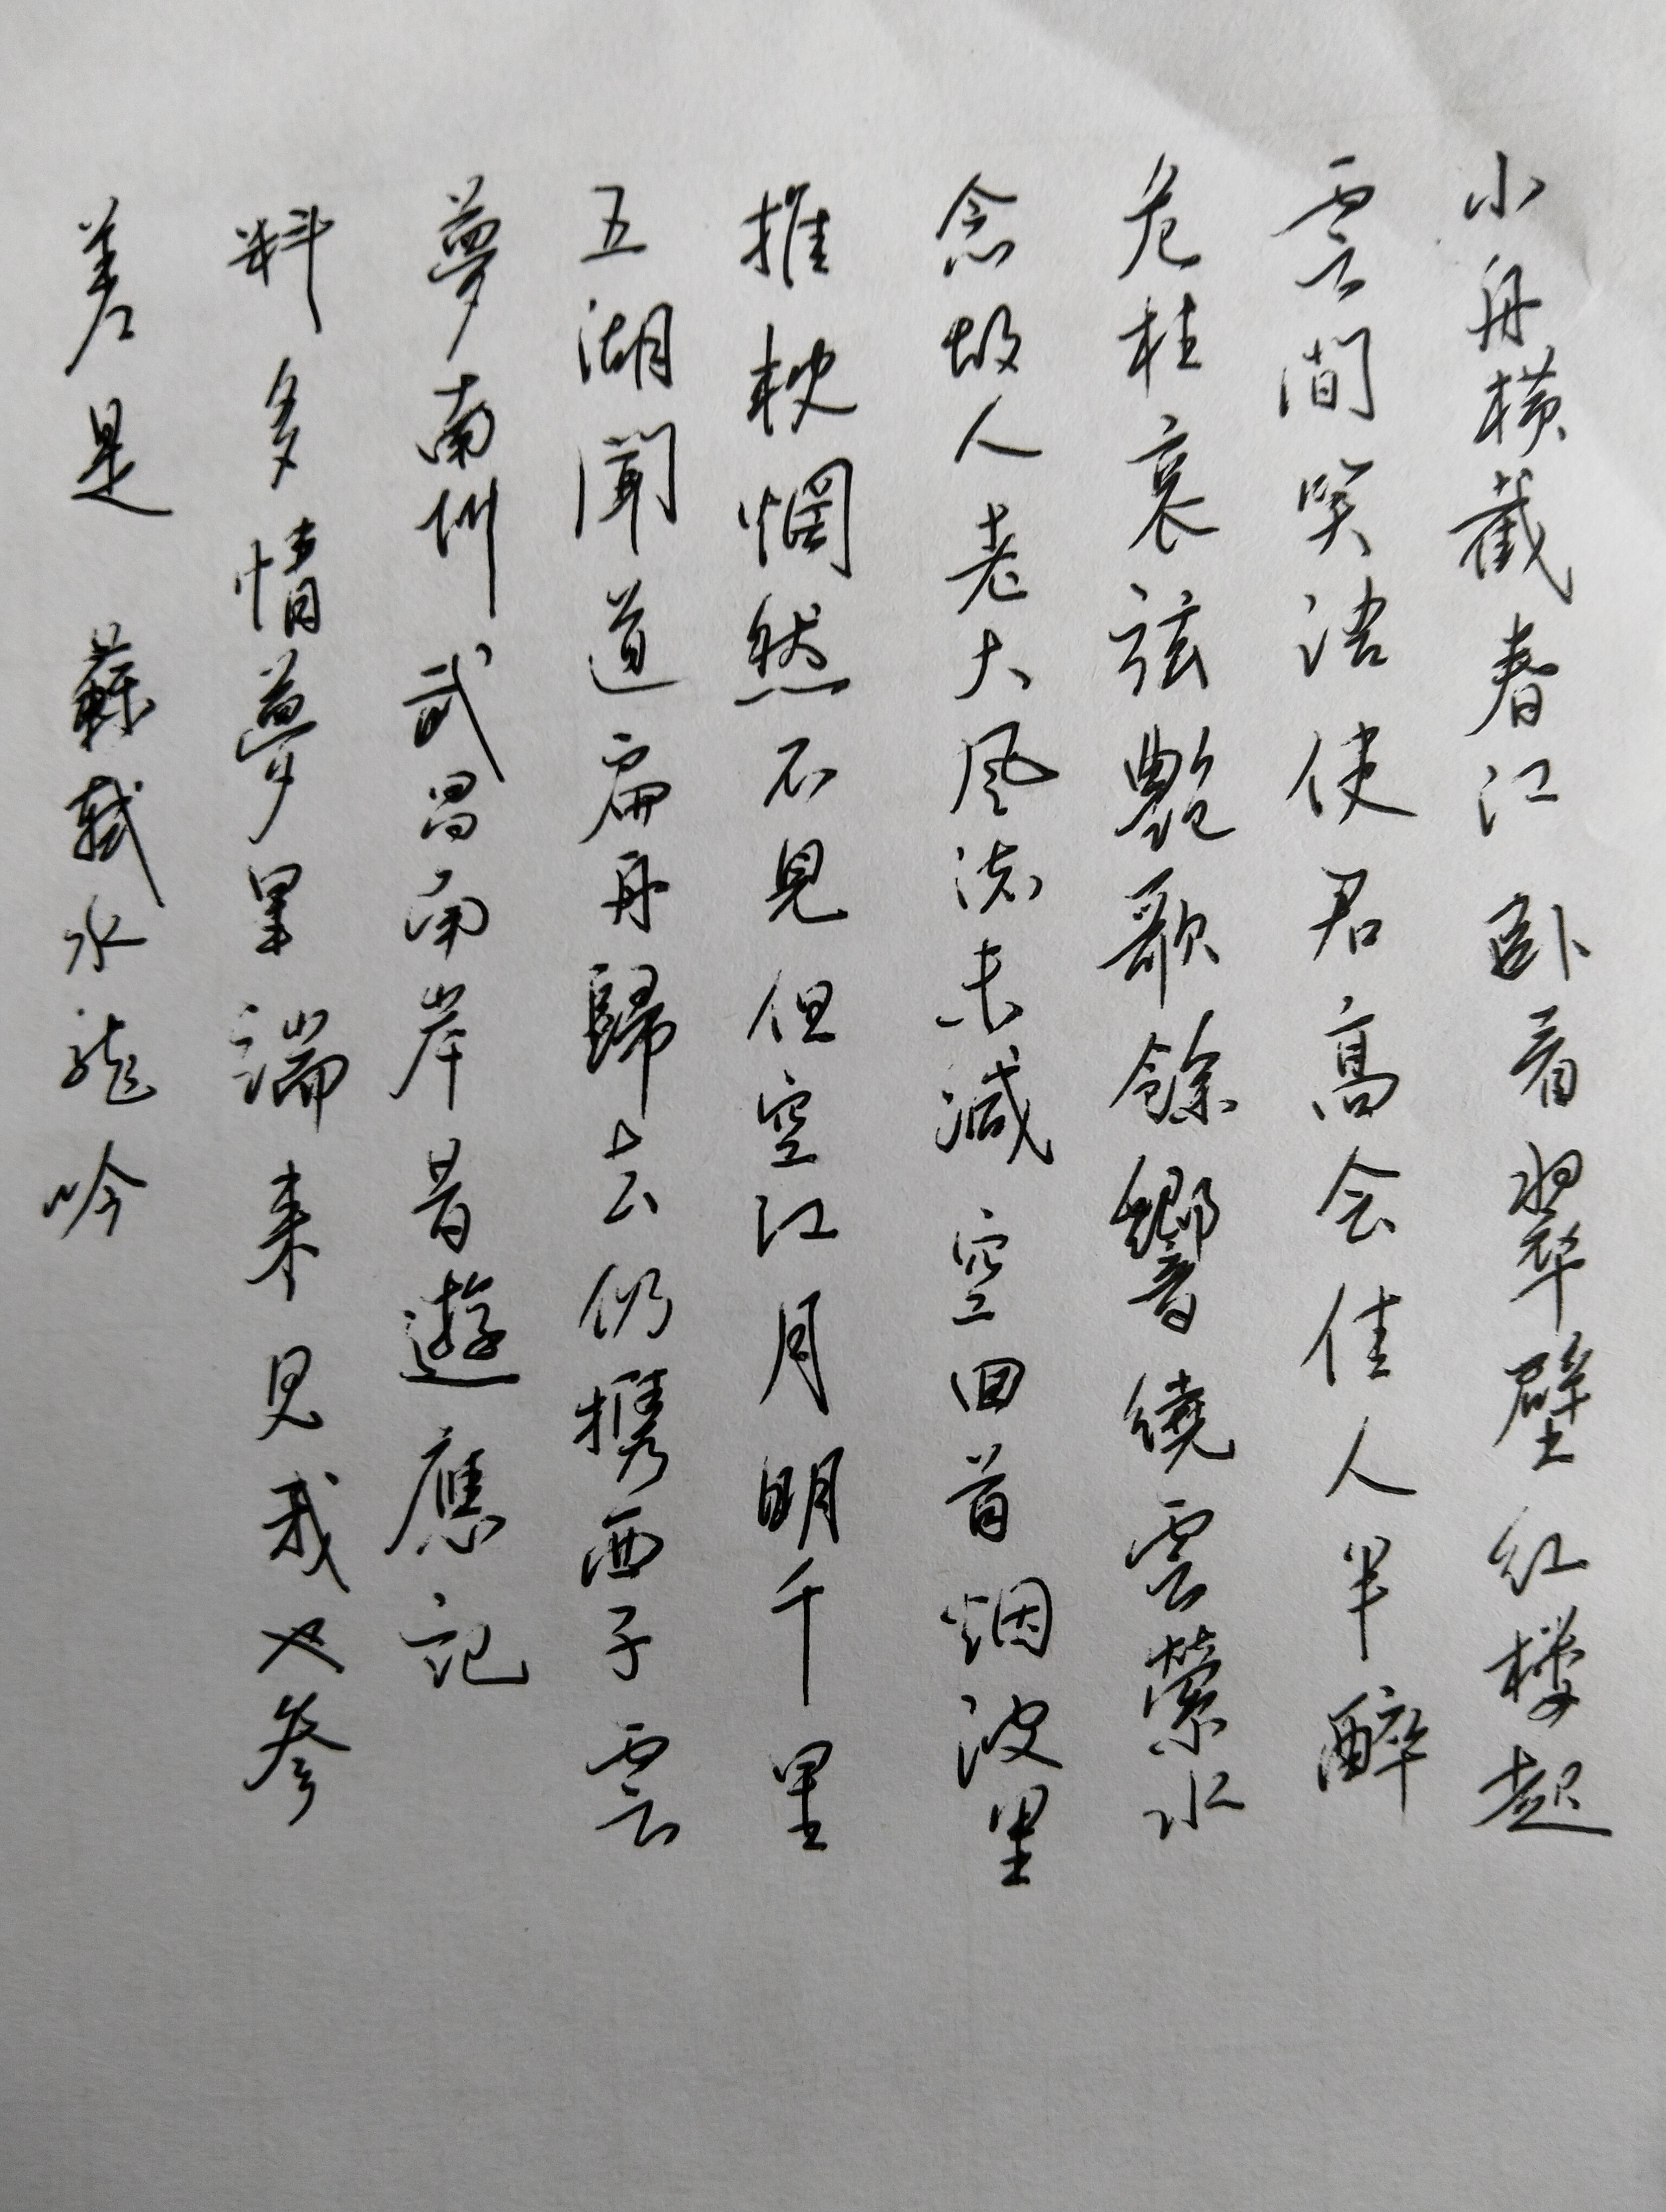 小舟横截春江卧看翠壁红楼起
雲间笑语使君高会佳人半醉
危柱哀弦艷歌餘響繞雲縈水
念故人老大风流未減空回首烟波里
推枕惘然不見但空江月明千里
五湖聞道扁舟歸去仍携西子雲
夢南州武昌南岸昔遊應記
料多情夢里端来見我也参
差是 蘇軾水龙吟